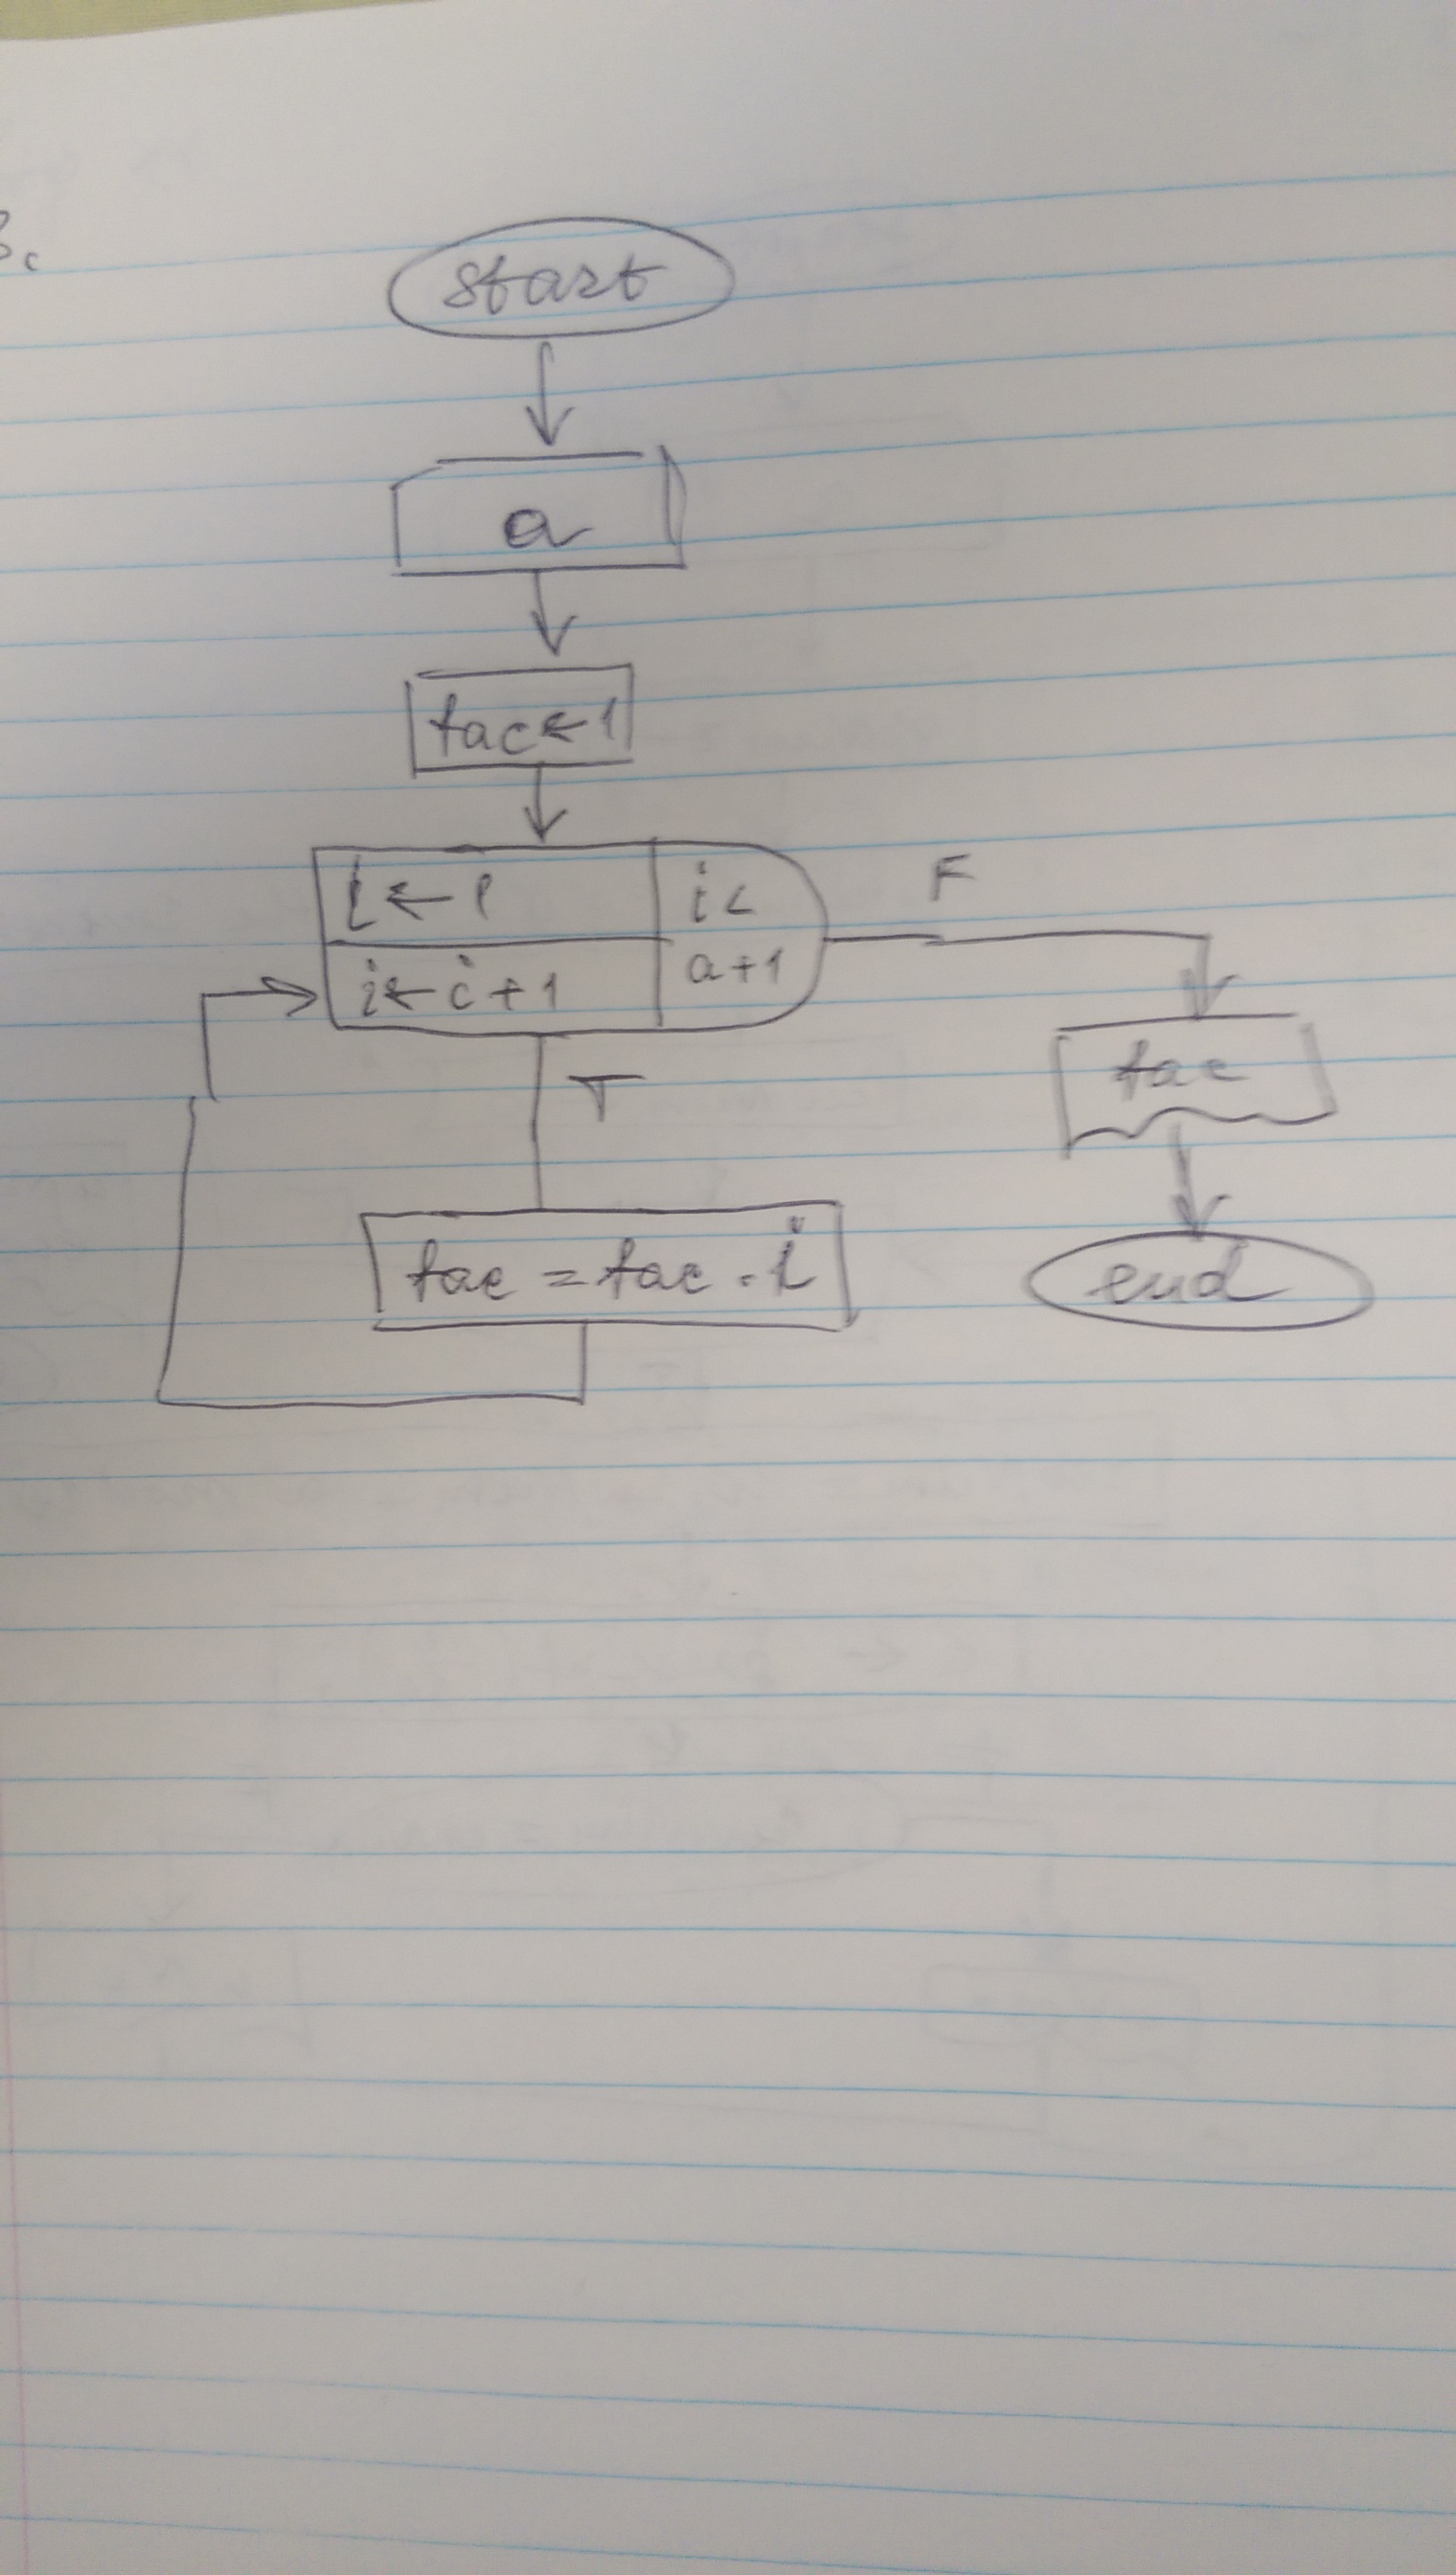 3.
start
a
fac ← 1
i ← 1
i <
a + 1
i ← i + 1
F
T
fac
fac = fac . i
end